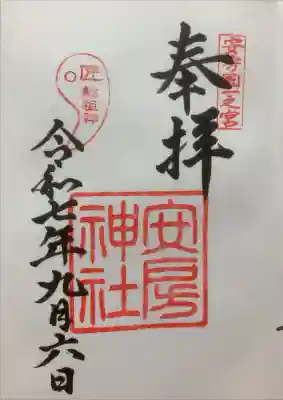 安房国一之宮
奉拝
安房
神社
匠総祖神
令和七年九月六日